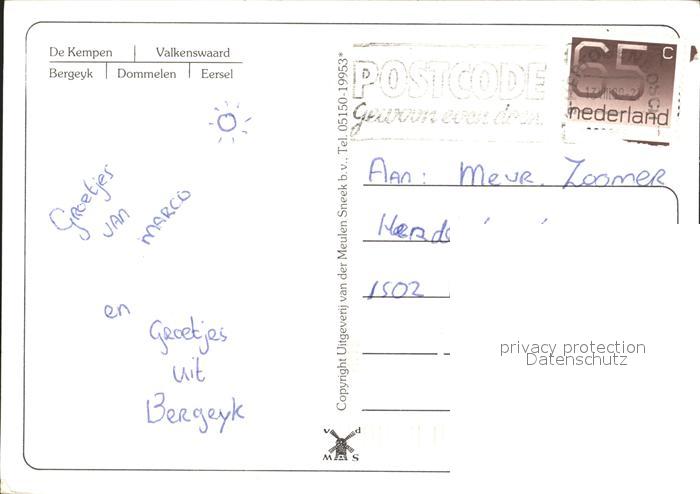 De Kempen Valkenswaard
Bergeyk Dommelen Eersel
Groetjes
VAN
MARCO
en
Groetjes
uit
Bergeyk
Copyright Uitgeverij van der Meulen Sneek b.v., Tel. 05150-19953*
v d
M S
POSTCODE
Gewoon even doen
65 c
nederland
AAN: Mevr. Zoomer
1502
privacy protection
Datenschutz